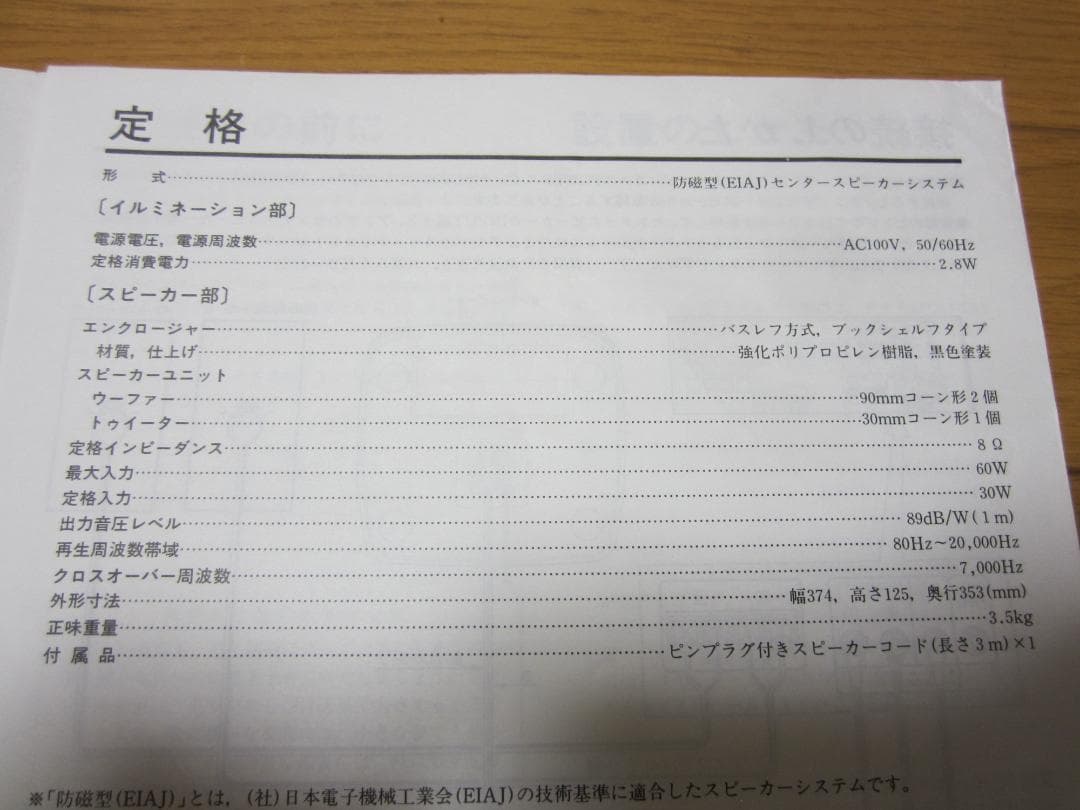 定 格
形 式……防磁型(EIAJ)センタースピーカーシステム
〔イルミネーション部〕
電源電圧，電源周波数……AC100V，50/60Hz
定格消費電力……2.8W
〔スピーカー部〕
エンクロージャー……バスレフ方式，ブックシェルフタイプ
材質，仕上げ……強化ポリプロピレン樹脂，黒色塗装
スピーカーユニット
ウーファー……90mmコーン形2個
トゥイーター……30mmコーン形1個
定格インピーダンス……8Ω
最大入力……60W
定格入力……30W
出力音圧レベル……89dB/W(1m)
再生周波数帯域……80Hz～20,000Hz
クロスオーバー周波数……7,000Hz
外形寸法……幅374，高さ125，奥行353(mm)
正味重量……3.5kg
付属品……ピンプラグ付きスピーカーコード(長さ3m)×1
※「防磁型(EIAJ)」とは，(社)日本電子機械工業会(EIAJ)の技術基準に適合したスピーカーシステムです。